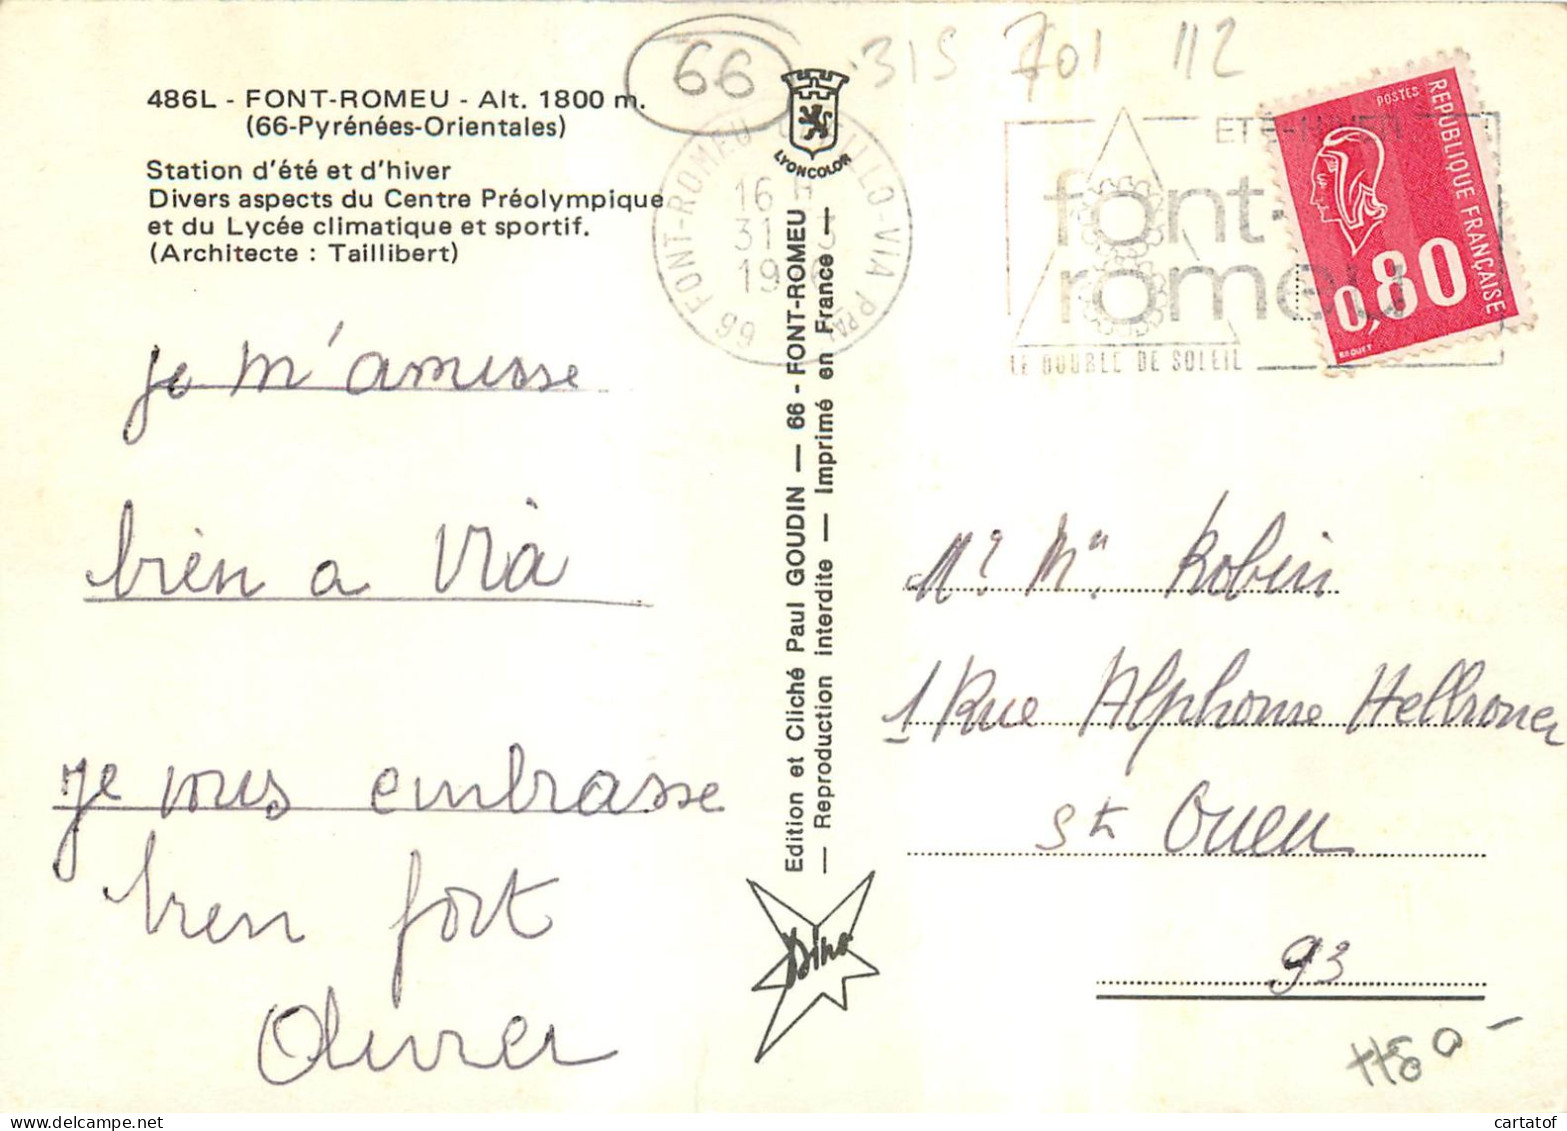 66
315 701 112
486L - FONT-ROMEU - Alt. 1800 m.
(66-Pyrénées-Orientales)
Station d'été et d'hiver
Divers aspects du Centre Préolympique
et du Lycée climatique et sportif.
(Architecte : Taillibert)
LYONCOLOR
66 FONT-ROMEU ODEILLO-VIA P.PAL
16 H
31
19
ETE-HIVER
font-
romeu
LE DOUBLE DE SOLEIL
POSTES
REPUBLIQUE FRANÇAISE
0,80
BEQUET
je m'amusse
bien a Via
je vous embrasse
bien fort
Olivier
Edition et Cliché Paul GOUDIN — 66 - FONT-ROMEU
— Reproduction interdite — Imprimé en France —
Dino
Mr Mm Robin
1 Rue Alphonse Hellroner
St Ouen
93
cartatof